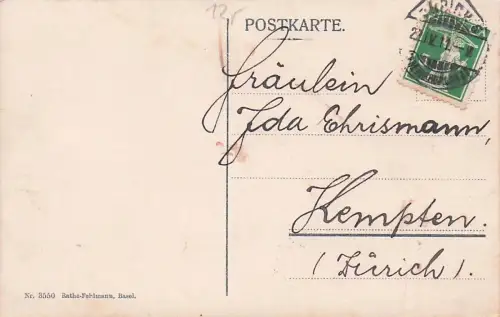 12.-
POSTKARTE.
Fräulein
Ida Ehrismann,
Kempten.
(Zürich).
Nr. 3550 Rathe-Fehlmann, Basel.